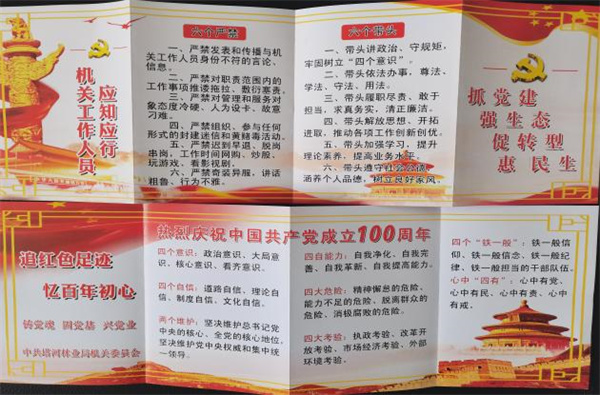 应知应行
机关工作人员
六个严禁
一、严禁发表和传播与机
关工作人员身份不符的言论、
信息。
二、严禁对职责范围内的
工作事项推诿拖拉、敷衍塞责。
三、严禁对管理和服务对
象态度冷硬、人为设卡、故意
刁难。
四、严禁组织、参与任何
形式的封建迷信和黄赌毒活动。
五、严禁迟到早退、脱岗
串岗，工作时间网购、炒股、
玩游戏、看影视剧。
六、严禁奇装异服，讲话
粗鲁、行为不雅。
六个带头
一、带头讲政治、守规矩，
牢固树立“四个意识”。
二、带头依法办事，尊法、
学法、守法、用法。
三、带头履职尽责、敢于
担当，求真务实，清正廉洁。
四、带头解放思想、开拓
进取，推动各项工作创新创优。
五、带头加强学习，提升
理论素养，提高业务水平。
六、带头遵守社会公德，
涵养个人品德，树立良好家风。
抓党建
强生态
促转型
惠民生
追红色足迹
忆百年初心
铸党魂 固党基 兴党业
中共塔河林业局机关委员会
热烈庆祝中国共产党成立100周年
四个意识：政治意识、大局意
识、核心意识、看齐意识。
四个自信：道路自信、理论自
信、制度自信、文化自信。
两个维护：坚决维护总书记党
中央的核心、全党的核心地位，
坚决维护党中央权威和集中统
一领导。
四自能力：自我净化、自我完
善、自我革新、自我提高能力。
四大危险：精神懈怠的危险、
能力不足的危险、脱离群众的
危险、消极腐败的危险。
四大考验：执政考验、改革开
放考验、市场经济考验、外部
环境考验。
四个“铁一般”：铁一般信
仰、铁一般信念、铁一般纪
律、铁一般担当的干部队伍。
心中“四有”：心中有党、
心中有民、心中有责、心中有
戒。